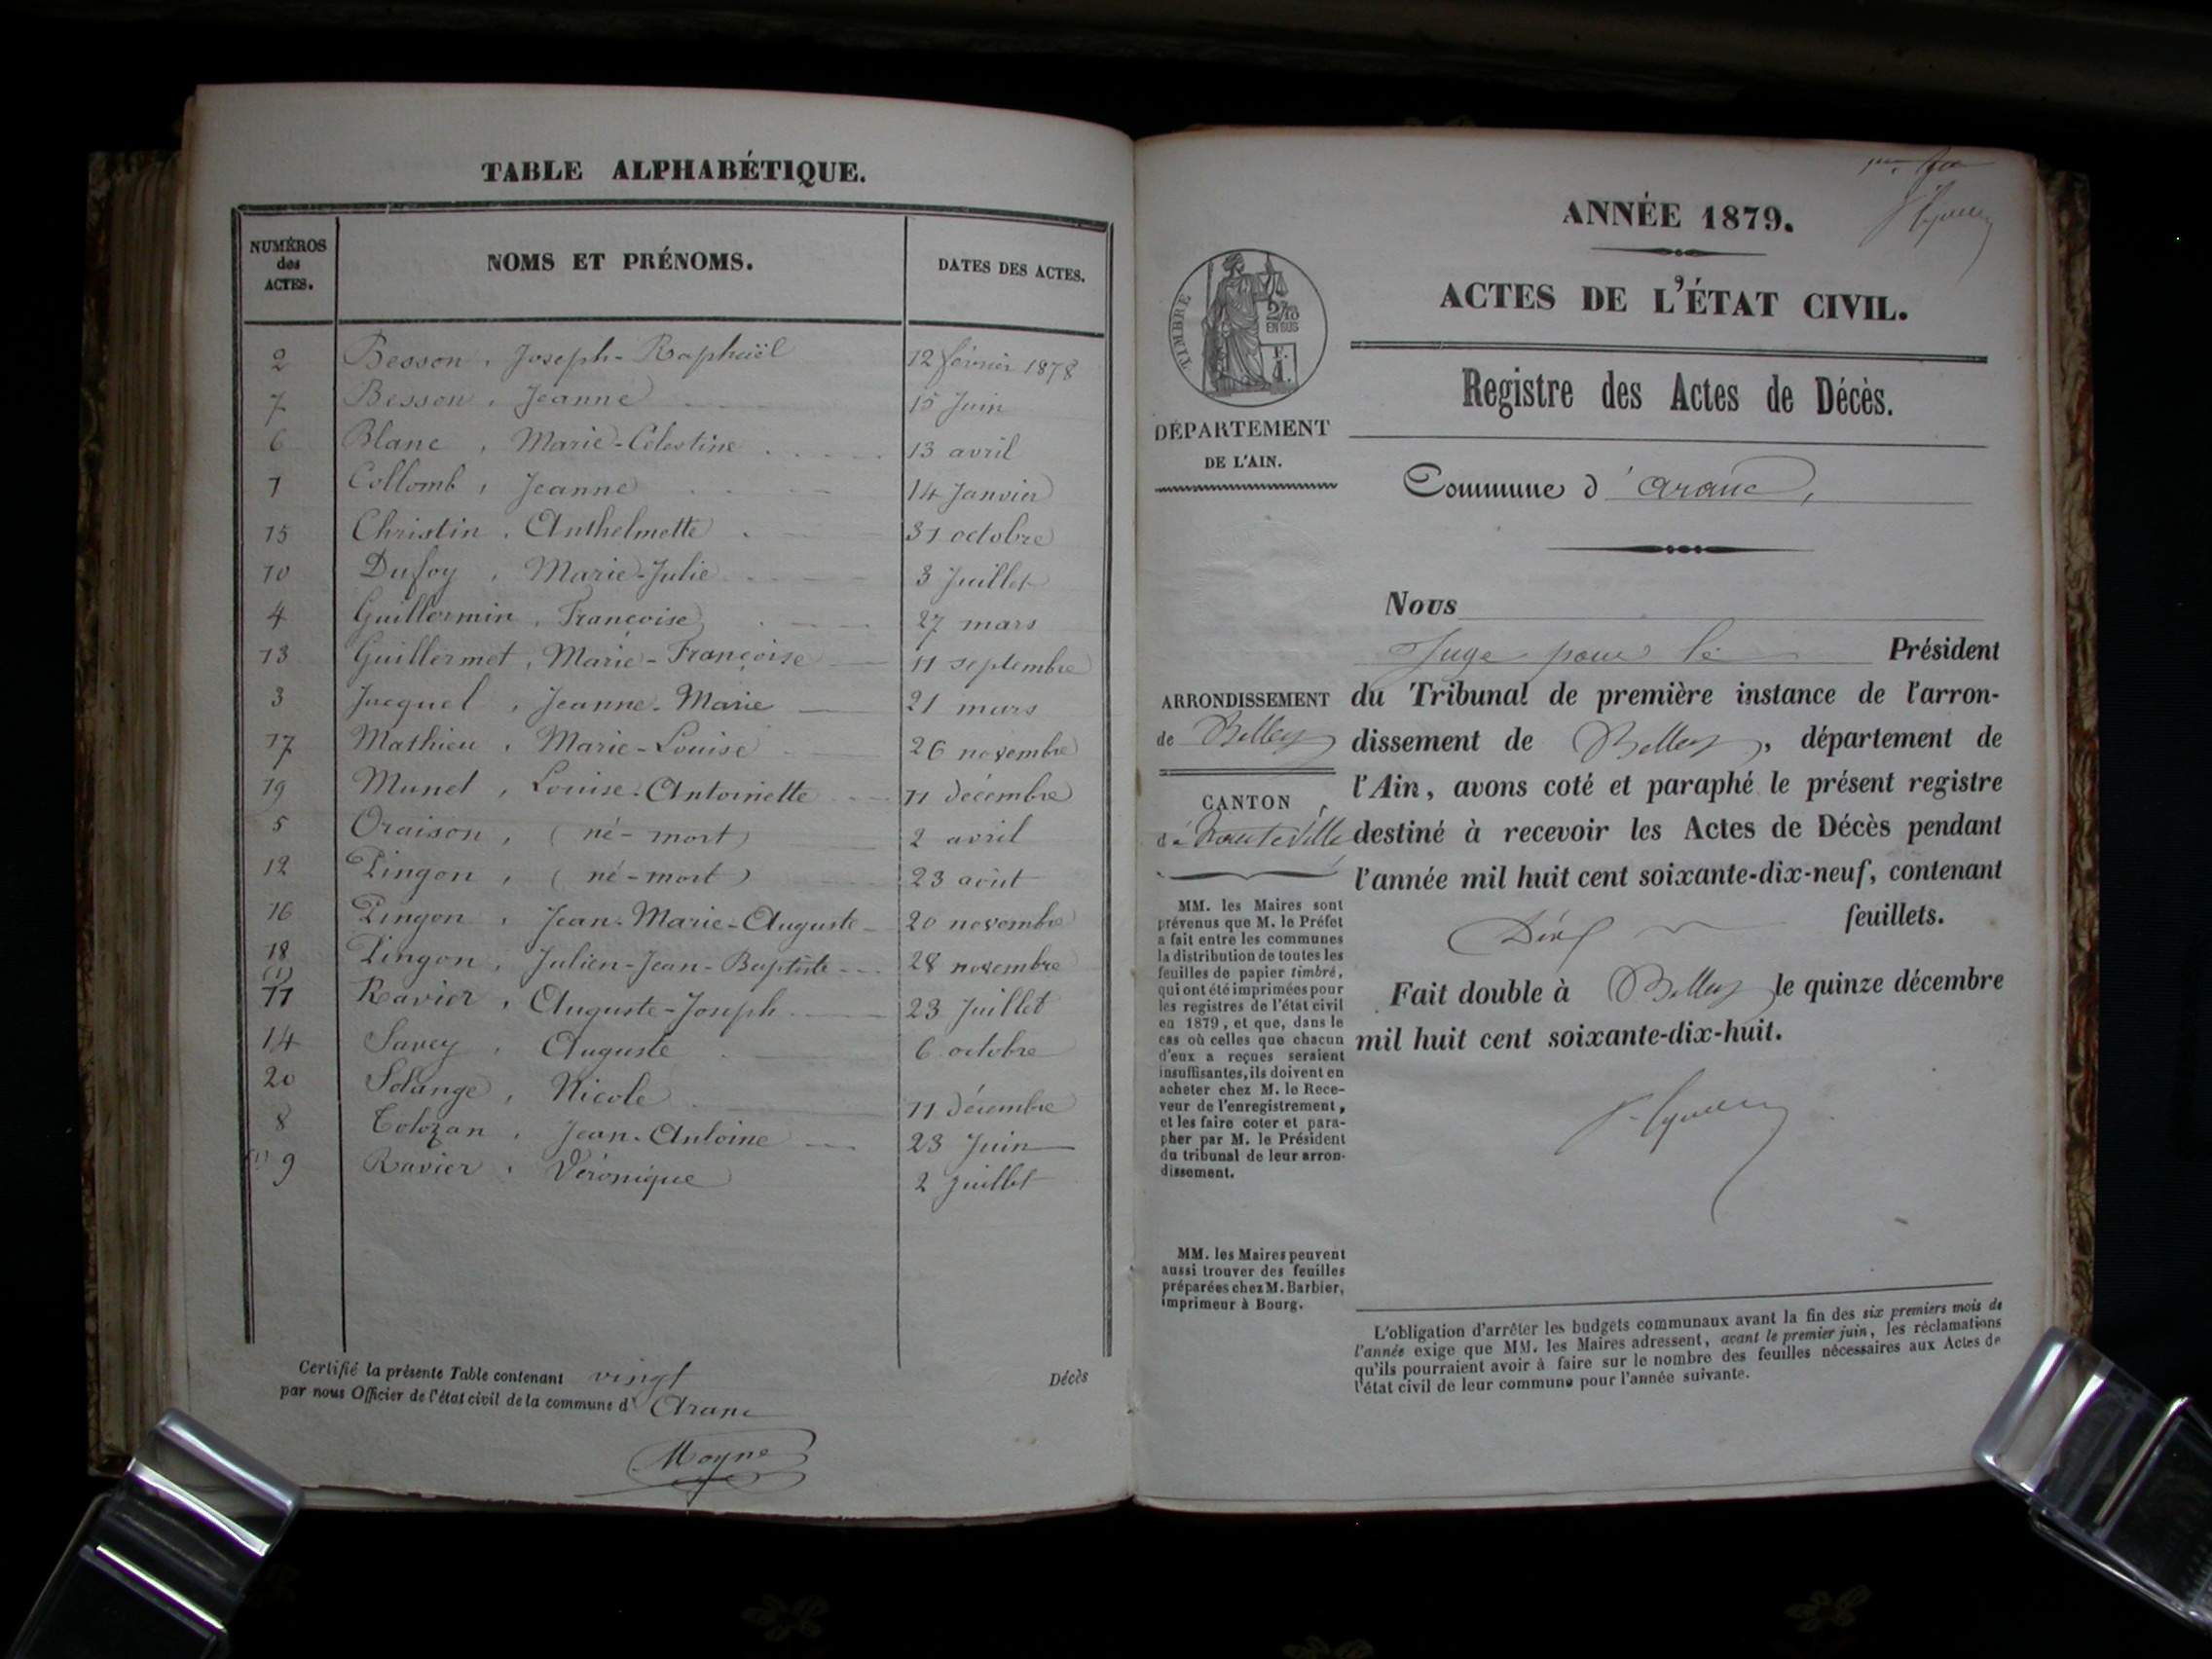 TABLE ALPHABÉTIQUE.
NUMÉROS des ACTES. NOMS ET PRÉNOMS. DATES DES ACTES.
2 Besson, Joseph-Raphaël 12 février 1878
7 Besson, Jeanne 15 Juin
6 Blanc, Marie-Célestine 13 avril
1 Collomb, Jeanne 14 Janvier
15 Christin, Anthelmette 31 octobre
10 Dufoy, Marie-Julie 3 Juillet
4 Guillermin, Françoise 27 mars
13 Guillermet, Marie-Françoise 11 septembre
3 Jacquel, Jeanne-Marie 21 mars
17 Mathieu, Marie-Louise 26 novembre
19 Munel, Louise-Antoinette 11 décembre
5 Oraison, (né-mort) 2 avril
12 Pingon, (né-mort) 23 aout
16 Pingon, Jean-Marie-Auguste 20 novembre
18 Pingon, Julien-Jean-Baptiste 28 novembre
(1) 11 Ravier, Auguste-Joseph 23 Juillet
14 Savey, Auguste 6 octobre
20 Solange, Nicole 11 décembre
8 Tolozan, Jean-Antoine 23 Juin
(1) 9 Ravier, Véronique 2 Juillet
Certifié la présente Table contenant vingt
par nous Officier de l'état civil de la commune d' Aranc
Décès
Moyne
ANNÉE 1879.
ACTES DE L'ÉTAT CIVIL.
Registre des Actes de Décès.
Commune d' Aranc,
TIMBRE
2/10
EN SUS
DÉPARTEMENT
DE L'AIN.
ARRONDISSEMENT
de Belley
CANTON
d'hauteville
MM. les Maires sont
prévenus que M. le Préfet
a fait entre les communes
la distribution de toutes les
feuilles de papier timbré,
qui ont été imprimées pour
les registres de l'état civil
en 1879, et que, dans le
cas où celles que chacun
d'eux a reçues seraient
insuffisantes, ils doivent en
acheter chez M. le Rece-
veur de l'enregistrement,
et les faire coter et para-
pher par M. le Président
du tribunal de leur arron-
dissement.
MM. les Maires peuvent
aussi trouver des feuilles
préparées chez M. Barbier,
imprimeur à Bourg.
Nous
Juge pour le Président
du Tribunal de première instance de l'arron-
dissement de Belley, département de
l'Ain, avons coté et paraphé le présent registre
destiné à recevoir les Actes de Décès pendant
l'année mil huit cent soixante-dix-neuf, contenant
Dix feuillets.
Fait double à Belley le quinze décembre
mil huit cent soixante-dix-huit.
L'obligation d'arrêter les budgets communaux avant la fin des six premiers mois de
l'année exige que MM. les Maires adressent, avant le premier juin, les réclamations
qu'ils pourraient avoir à faire sur le nombre des feuilles nécessaires aux Actes de
l'état civil de leur commune pour l'année suivante.